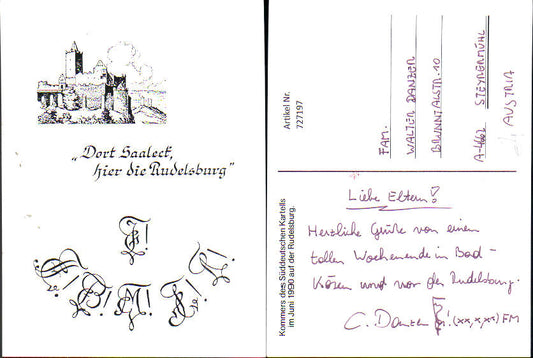 „Dort Saaleck,
hier die Rudelsburg"
Artikel Nr.
727197
Kommers des Süddeutschen Kartells
im Juni 1990 auf der Rudelsburg.
FAM.
WALTER DANZER
BRUNNTALSTR. 10
A-4662 STEYRERMÜHL
AUSTRIA
Liebe Eltern!
Herzliche Grüße von einem
tollen Wochenende in Bad-
Kösen und vor der Rudelsburg.
C. Danzer ! (xx, x, xx) FM